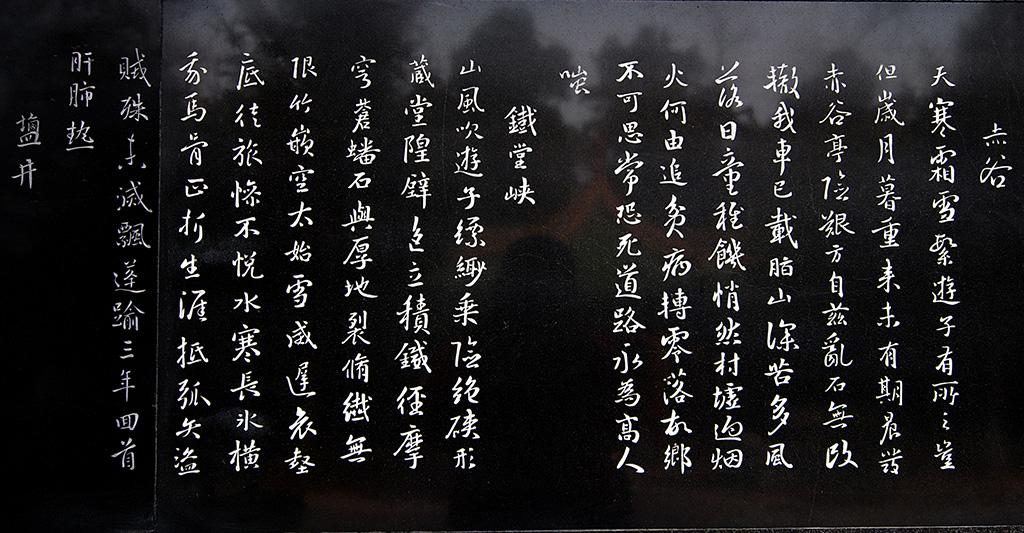 赤谷
天寒霜雪繁遊子有所之豈
但歲月暮重来未有期晨發
赤谷亭險艱方自茲亂石無改
轍我車已載脂山深苦多風
落日童稚饑悄然村墟迥烟
火何由追貧病轉零落故鄉
不可思常恐死道路永為高人
嗤
鐵堂峽
山風吹遊子縹緲乗險絶硤形
蔵堂隍壁色立積鐵徑摩
穹蒼蟠石與厚地裂脩纖無
限竹嵌空太始雪威遲哀壑
底徒旅慘不悅水寒長氷橫
我馬骨正折生涯抵弧矢盜
賊殊未滅飄蓬踰三年回首
肝肺热
鹽井